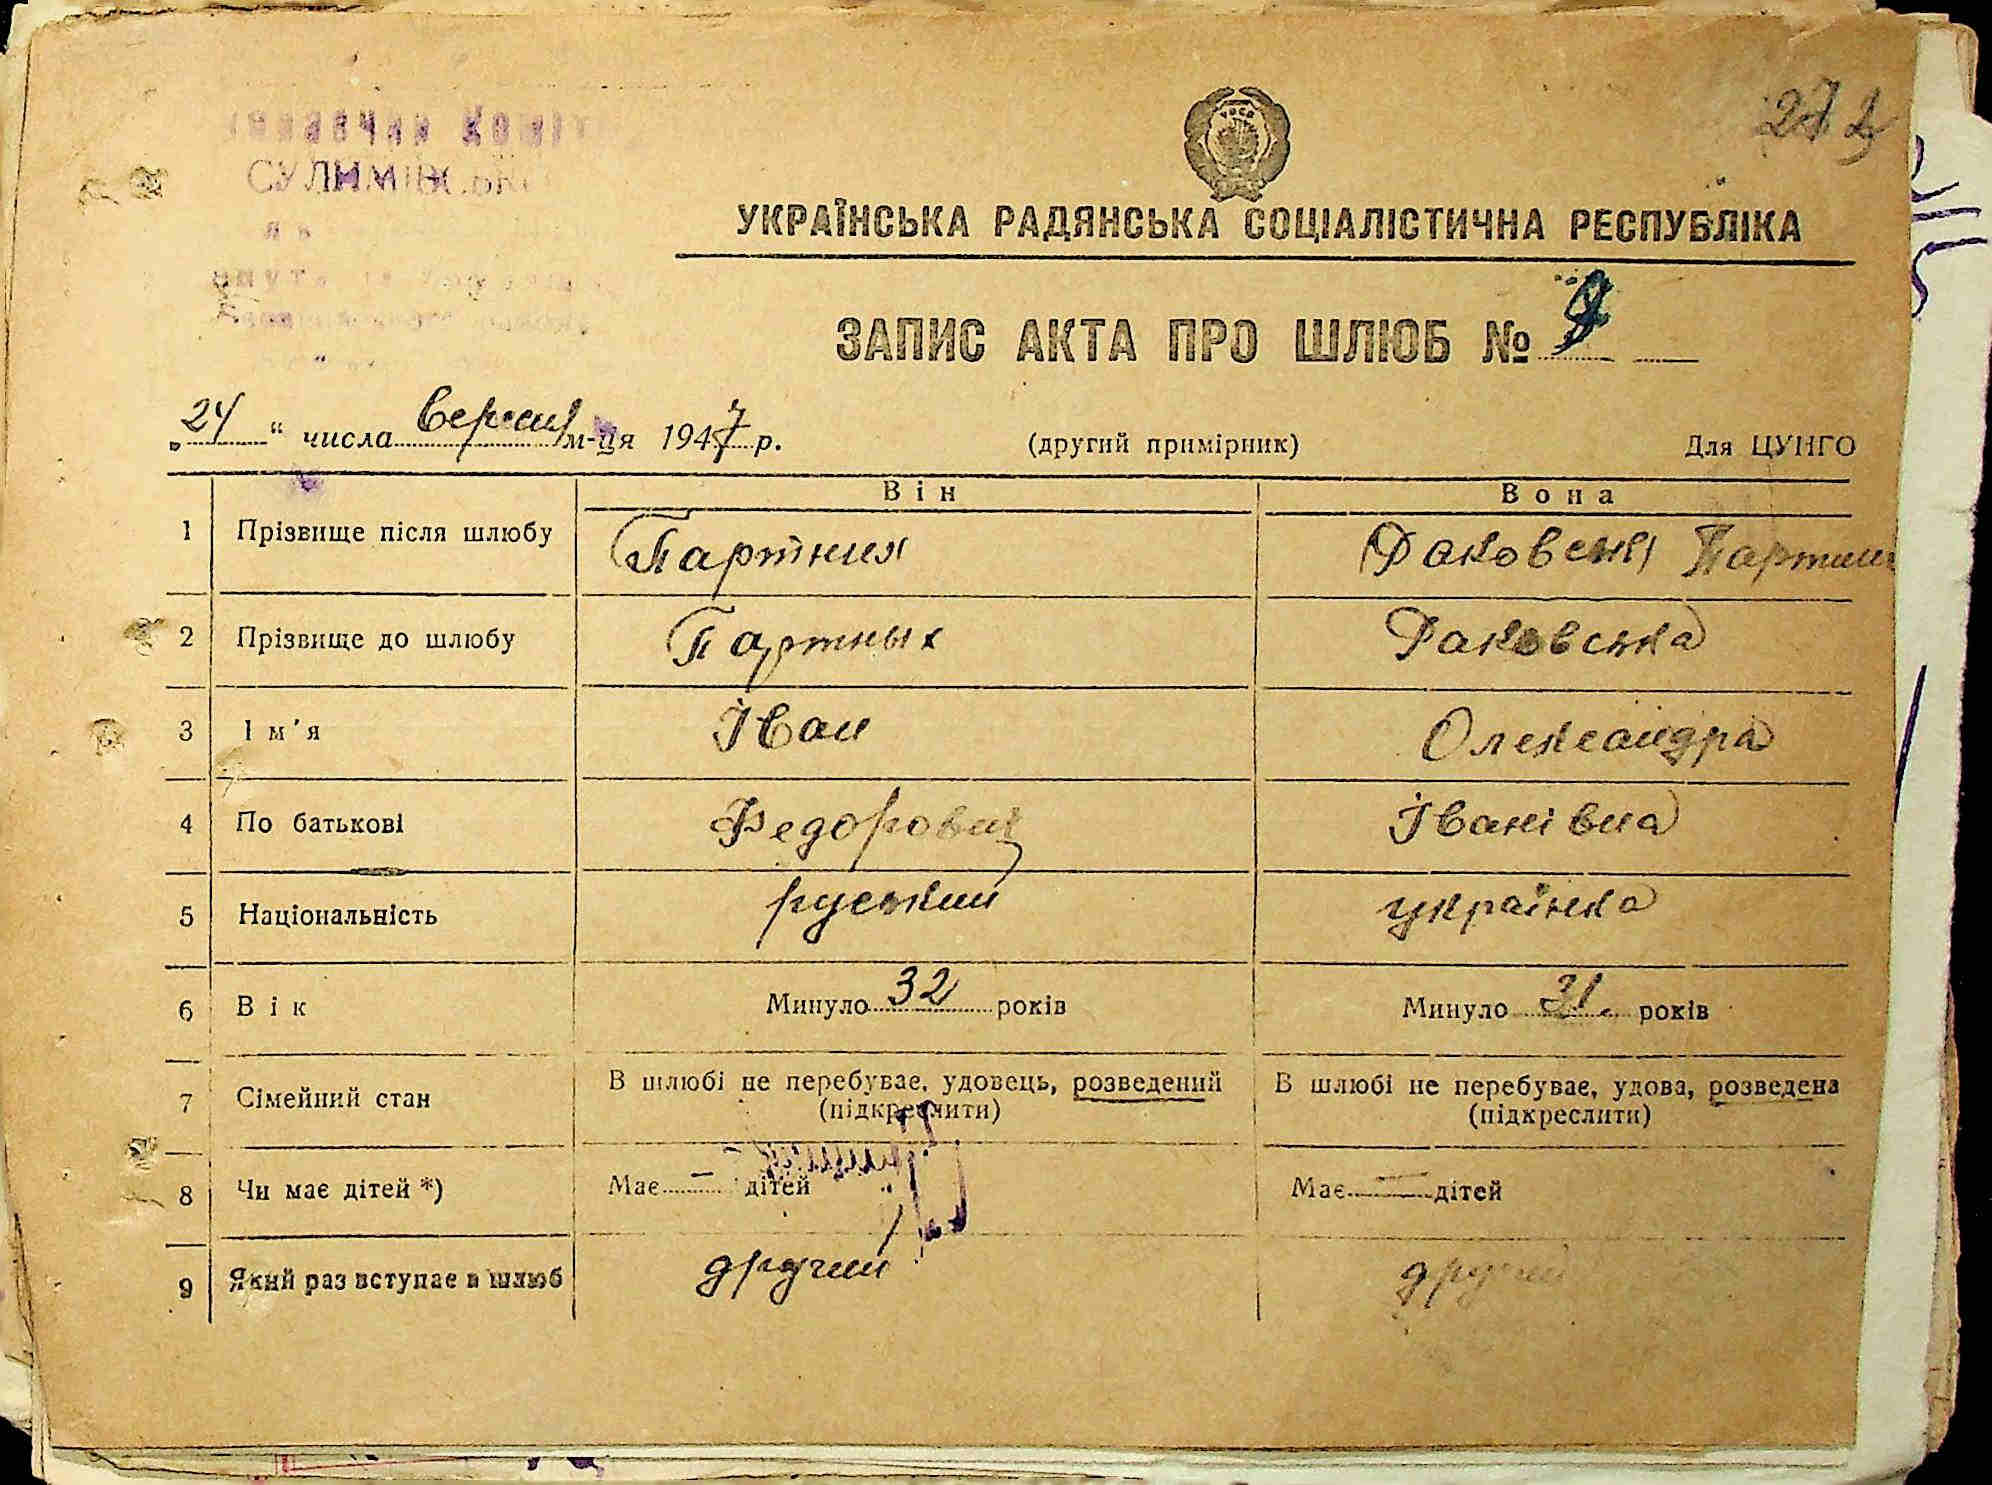 СУЛИМІВСЬКО
УРСР
УКРАЇНСЬКА РАДЯНСЬКА СОЦІАЛІСТИЧНА РЕСПУБЛІКА
ЗАПИС АКТА ПРО ШЛЮБ № 9
„24“ числа версня м-ця 1947 р. (другий примірник) Для ЦУНГО
Він Вона
1 Прізвище після шлюбу Партних Раковська Партних
2 Прізвище до шлюбу Партных Раковська
3 Ім'я Іван Олександра
4 По батькові Федорович Іванівна
5 Національність руський українка
6 Вік Минуло 32 років Минуло 31 років
7 Сімейний стан В шлюбі не перебуває, удовець, розведений В шлюбі не перебуває, удова, розведена
(підкреслити) (підкреслити)
8 Чи має дітей *) Має — дітей Має — дітей
9 Який раз вступає в шлюб другий другий